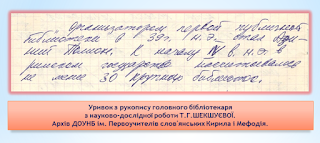 организатором первой публичной
библиотеки в 39г. н.э. стал Ази-
ний Полион. К началу IV в. н.э. в
римском государстве насчитывалось
не менее 30 крупных библиотек.
Уривок з рукопису головного бібліотекаря
з науково-дослідної роботи Т.Г.ШЕКШУЄВОЇ.
Архів ДОУНБ ім. Первоучителів слов'янських Кирила і Мефодія.